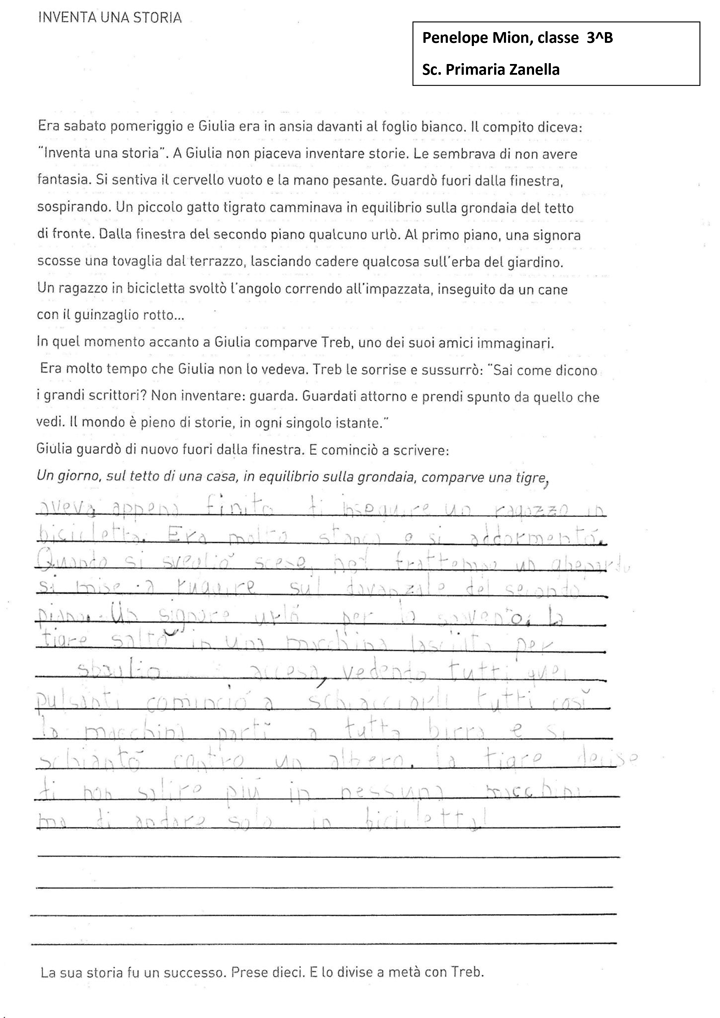 INVENTA UNA STORIA
Penelope Mion, classe 3^B
Sc. Primaria Zanella
Era sabato pomeriggio e Giulia era in ansia davanti al foglio bianco. Il compito diceva:
"Inventa una storia". A Giulia non piaceva inventare storie. Le sembrava di non avere
fantasia. Si sentiva il cervello vuoto e la mano pesante. Guardò fuori dalla finestra,
sospirando. Un piccolo gatto tigrato camminava in equilibrio sulla grondaia del tetto
di fronte. Dalla finestra del secondo piano qualcuno urlò. Al primo piano, una signora
scosse una tovaglia dal terrazzo, lasciando cadere qualcosa sull'erba del giardino.
Un ragazzo in bicicletta svoltò l'angolo correndo all'impazzata, inseguito da un cane
con il guinzaglio rotto...
In quel momento accanto a Giulia comparve Treb, uno dei suoi amici immaginari.
Era molto tempo che Giulia non lo vedeva. Treb le sorrise e sussurrò: "Sai come dicono
i grandi scrittori? Non inventare: guarda. Guardati attorno e prendi spunto da quello che
vedi. Il mondo è pieno di storie, in ogni singolo istante."
Giulia guardò di nuovo fuori dalla finestra. E cominciò a scrivere:
Un giorno, sul tetto di una casa, in equilibrio sulla grondaia, comparve una tigre,
aveva appena finito di inseguire un ragazzo in
bicicletta. Era molto stanca e si addormentò.
Quando si svegliò scese, nel frattempo un ghepardo
si mise a ruggire sul davanzale del secondo
piano. Un signore urlò per lo spavento, la
tigre saltò in una macchina lasciata per
sbaglio accesa, vedendo tutti quei
pulsanti cominciò a schiacciarli tutti così
la macchina partì a tutta birra e si
schiantò contro un albero. la tigre decise
di non salire più in nessuna macchina
ma di andare solo in bicicletta!
La sua storia fu un successo. Prese dieci. E lo divise a metà con Treb.